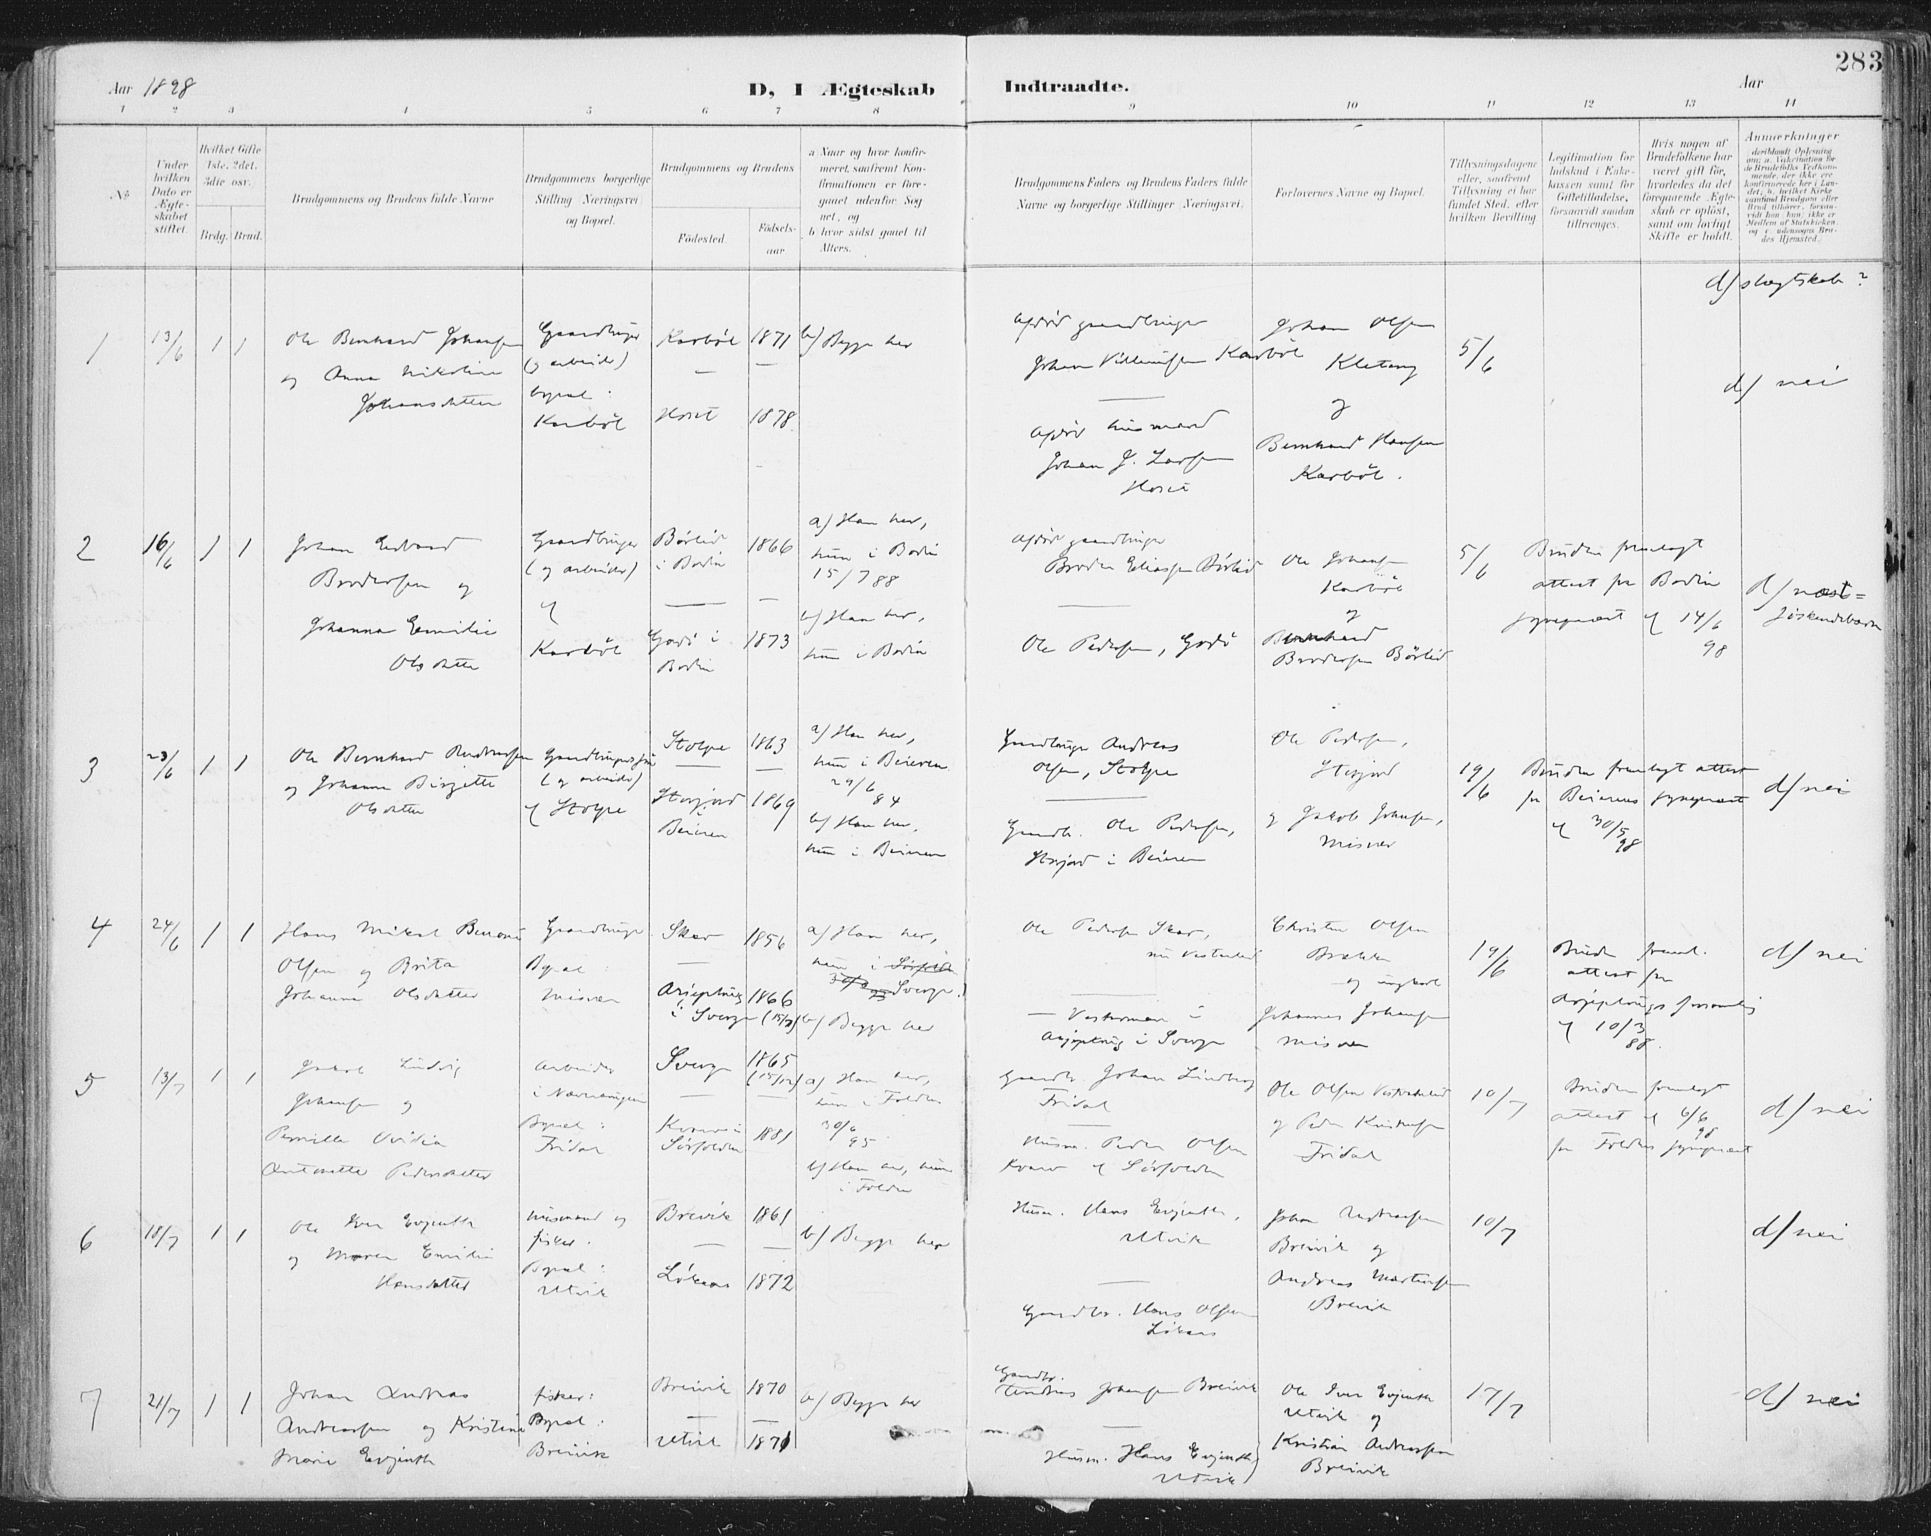 283
Aar 1898
D, I Ægteskab Indtraadte.
Aar
1 2 3 4 5 6 7 8 9 10 11 12 13 14
No
Under hvilken Dato er Ægteskabet stiftet.
Hvilket Gifte 1ste, 2det, 3die osv.
Brdg. Brud.
Brudgommens og Brudens fulde Navne
Brudgommens borgerlige Stilling (Næringsvei) og Bopæl.
Brudgommens og Brudens
Fødested.
Fødselsaar
a Naar og hvor konfirmeret, saafremt Konfirmationen er foregaaet udenfor Sognet, og
b hvor sidst gaaet til Alters.
Brudgommens Faders og Brudens Faders fulde Navne og borgerlige Stillinger (Næringsvei).
Forlovernes Navne og Bopæl.
Tillysningsdagene eller, saafremt Tillysning ei har fundet Sted, efter hvilken Bevilling.
Legitimation for Indskud i Enkekassen samt for Giftetilladelse, forsaavidt saadan tiltrænges.
Hvis nogen af Brudefolkene har været gift før, hvorledes da det foregaaende Ægteskab er opløst, samt om lovligt Skifte er holdt.
Anmærkninger
d/ slægtskab?
1 13/6 1 1
Ole Bernhard Johansen
og Anna Nikoline
Johansdatter
Gaardbruger
(og arbeider)
bopæl:
Karbøl
Karbøl 1871
Hoset 1878
b/ Begge her
Afdød gaardbruger
Johan Villumsen Karbøl
Afdød husmand
Johan J. Larsen
Hoset
Johan Olsen
og
Bernhard Hansen
Karbøl.
5/6
d/ nei
2 16/6 1 1
Johan Edvard
Brodersen og
Johanna Emilie
Olsdatter
Gaardbruger
(og arbeider)
Karbøl
Børlid
i Bodin
1866
Godø i
Bodin
1873
a/ Han her,
hun i Bodin
15/7 88
b/ Han her,
hun i Bodin
Afdød gaardbruger
Broder Eliassen Børlid
Ole Pedersen, Godø
Ole Johansen
Karbøl
og
Bernhard
Brodersen Børlid
5/6
Bruden fremlagt
attest fra Bodin
af 14/6
98
d/ næst=
søskendebarn
3 23/6 1 1
Ole Bernhard Andreassen
og Johanna Birgette
Olsdatter
Gaardbrugersøn
(og arbeider)
af Stolpe
Stolpe 1863
Storjord
Beieren
1869
a/ Han her,
hun i Beieren
29/6
84
b/ Han her,
hun i Beieren
Gaardbruger Andreas
Olsen, Stolpe
Gaardb. Ole Pedersen,
Storjord i Beieren
Ole Pedersen,
Storjord
og Jakob Johansen,
Misvær
19/6
Bruden fremlagt attest
fra Beierens
af 30/5
98
d/ nei
4 24/6 1 1
Hans Mikal Benoni
Olsen og Brita
Johanna Olsdatter
Gaardbruger
Bopæl:
Misvær
Skar 1856
Arjeploug
i Sverge
1866
a/ Han her,
hun i Sørfolden
Sverge.
b/ Begge her
Ole Pedersen Skar,
Arjeploug i Sverge
Christen Olsen
Johannes Johansen
Misvær
19/6
Bruden freml.
attest fra
Arjeplougs forsamling
af 10/3
88.
d/ nei
5 13/7 1 1
Jakob Ludvig
Johansen og
Pernille Ovidia
Antonette Pedersdatter
Arbeider
Bopæl:
Fridal
Sverge 1865
Sørfolden
1881
a/ Han her,
hun i Folden
30/6
95
b/ Han her, hun
i Folden
Gaardbr. Johan Lindberg
Fridal
Husm. Peder Olsen
Kvarv af Sørfolden
Ole Olsen
og Peder Kristensen
Fridal
10/7
Bruden fremlagt
attest af 6/6
98
fra Foldens
d/ nei
6 18/7 1 1
Ole Iver Evjenth
og Maren Emilie
Hansdatter
Husmand og
fisker.
Bopæl:
Utvik
Breivik 1861
Løkaas 1872
b/ Begge her
Husm. Hans Evjenth,
Utvik
Gaardbr. Hans Olsen
Løkaas
Johan Andreassen
Breivik og
Andreas Martinsen
Breivik
10/7
d/ nei
7 21/7 1 1
Johan Andreas
Andreassen og Kristine
Marie Evjenth
fisker:
Bopæl:
Breivik
Breivik 1870
Utvik 1871
b/ Begge her
Gaardbr.
Andreas Johansen Breivik
Husm. Hans Evjenth
Utvik
Ole Iver Evjenth
Utvik og
Kristian Andreassen
Breivik
17/7
d/ nei